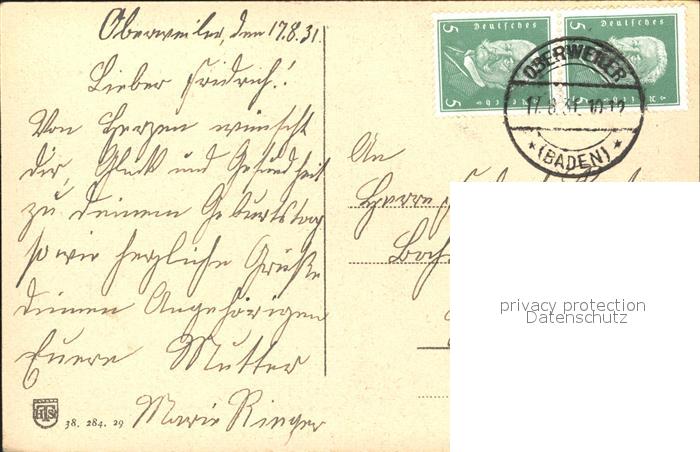 Oberweiler, den 17.8.31.
Lieber Friedrich!
Von Herzen wünscht
dir, Glück und Gesundheit
zu deinem Geburtstag
so wie herzliche Grüße
deinen Angehörigen
Euere Mutter
Marie Ringer
An
Herrn
38. 284. 29
Deutsches
5
5
Deutsches
5
5
OBERWEILER
17.8.31. 10-11
* (BADEN) *
privacy protection
Datenschutz